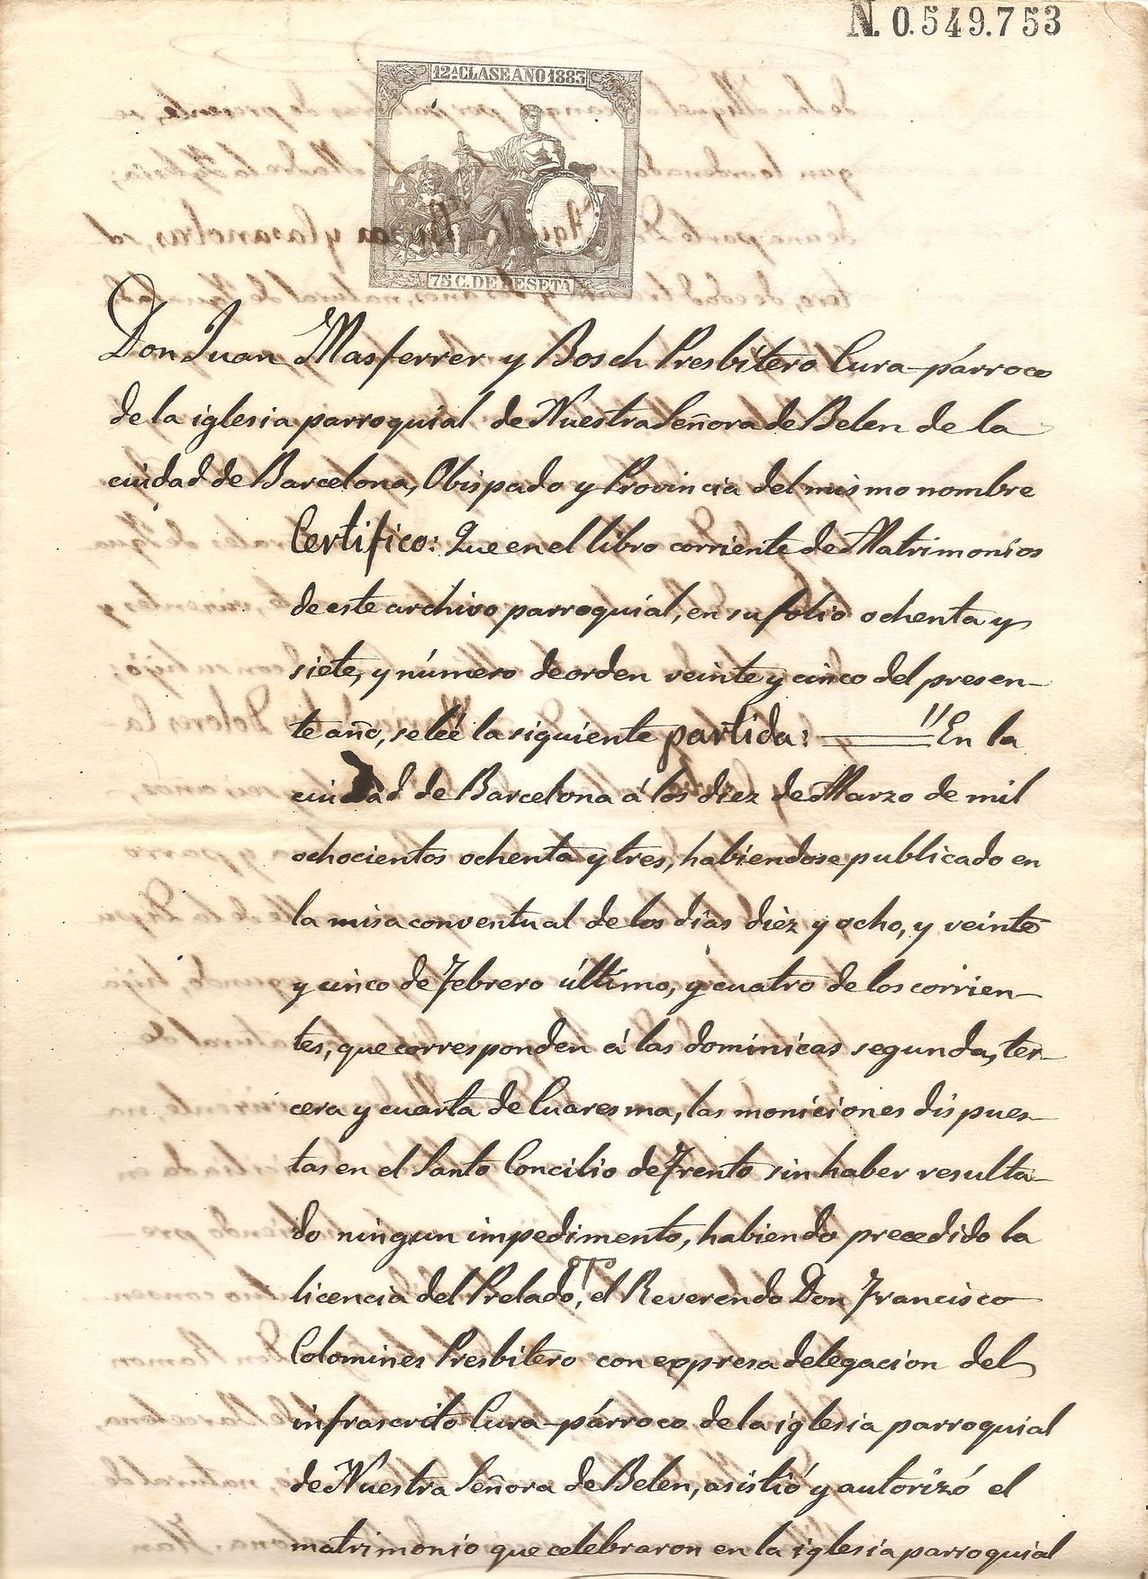 N. 0.549.753
12ª CLASE AÑO 1883
75 C. DE PESETA
Don Juan Masferrer y Bosch Presbitero Cura-párroco
de la iglesia parroquial de Nuestra Señora de Belen de la
ciudad de Barcelona, Obispado y Provincia del mismo nombre
Certifico: Que en el libro corriente de Matrimonios
de este archivo parroquial, en su folio ochenta y
siete, y número de orden veinte y cinco del presen-
te año, se lée la siguiente partida: "En la
ciudad de Barcelona á los diez de Marzo de mil
ochocientos ochenta y tres, habiendose publicado en
la misa conventual de los dias diez y ocho, y veinte
y cinco de Febrero último, y cuatro de los corrien-
tes, que corresponden á las domínicas segunda, ter-
cera y cuarta de Cuaresma, las moniciones dispues-
tas en el Santo Concilio de Trento sin haber resulta-
do ningun impedimento, habiendo precedido la
licencia del Prelado, el Reverendo Don Francisco
Colomines Presbitero con expresa delegacion del
infrascrito Cura-párroco de la iglesia parroquial
de Nuestra Señora de Belen, asistió y autorizó el
matrimonio que celebraron en la iglesia parroquial